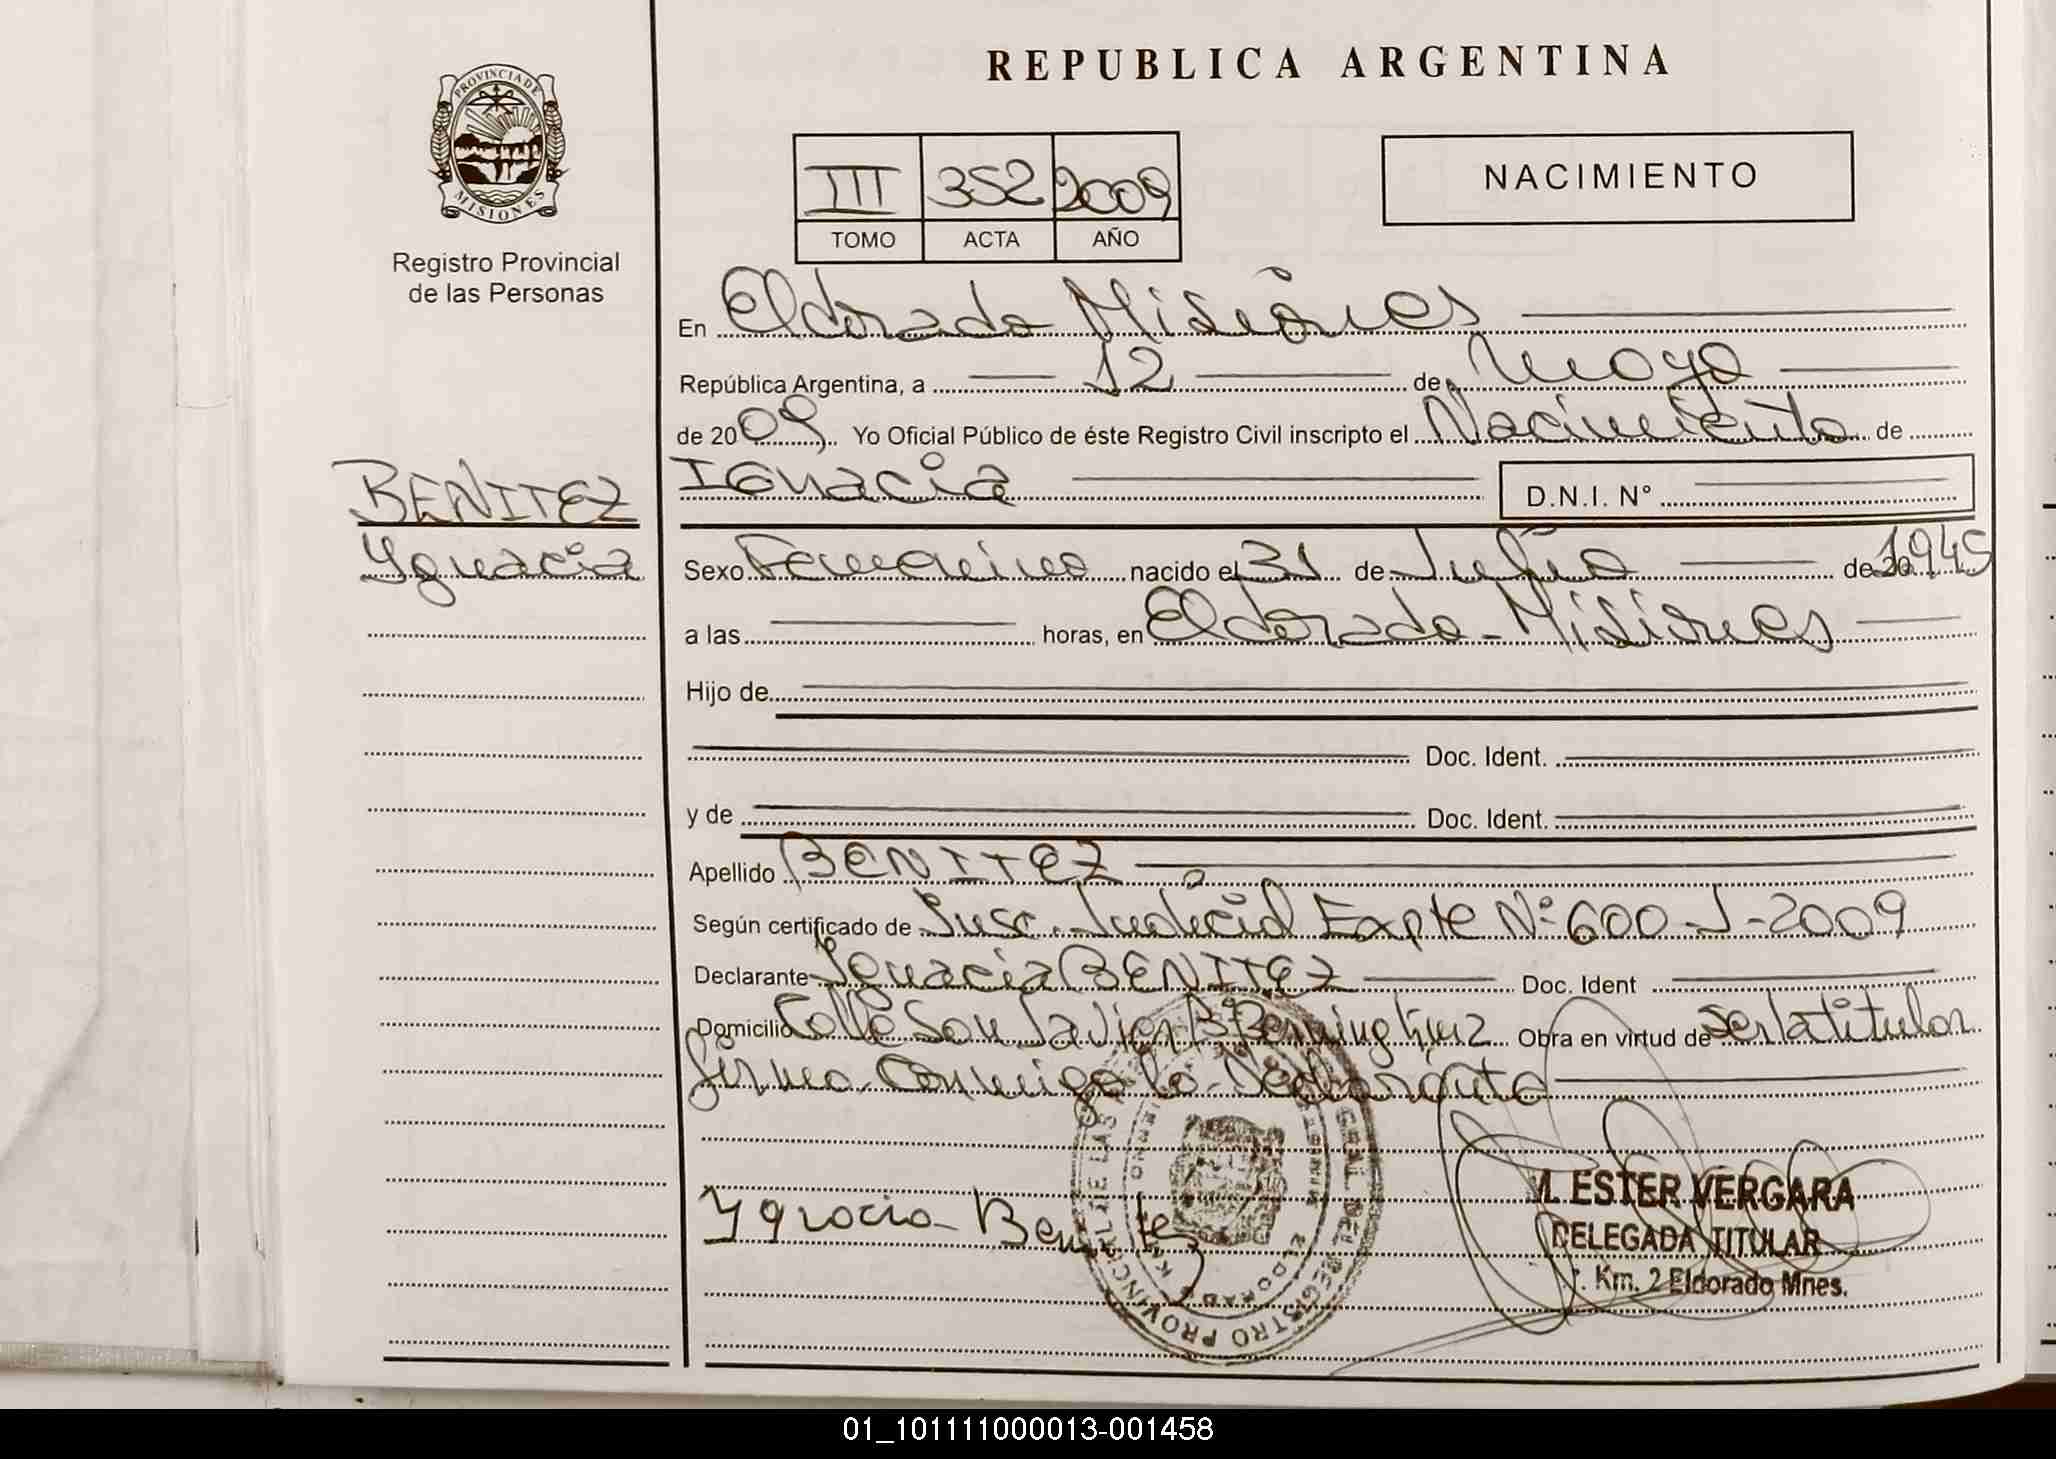 REPUBLICA ARGENTINA
PROVINCIA DE
MISIONES
Registro Provincial
de las Personas
III 352 2009
TOMO ACTA AÑO
NACIMIENTO
En Eldorado Misiones
República Argentina, a 12 de Mayo
de 2009, Yo Oficial Público de éste Registro Civil inscripto el Nacimiento de
Ignacia D.N.I. N°
BENITEZ
Ygnacia
Sexo Femenino nacido el 31 de Julio de 20 1945
a las horas, en Eldorado - Misiones
Hijo de
Doc. Ident.
y de Doc. Ident.
Apellido BENITEZ
Según certificado de Insc. Judicial Expte Nº 600-J-2009
Declarante Ignacia BENITEZ Doc. Ident
Domicilio Calle San Javier Bº Obra en virtud de ser la titular
firma conmigo la
Ygnacia Benitez
REGISTRO PROVINCIAL DE LAS
ELDORADO
M. ESTER VERGARA
DELEGADA TITULAR
Km. 2 Eldorado Mnes.
01_101111000013-001458